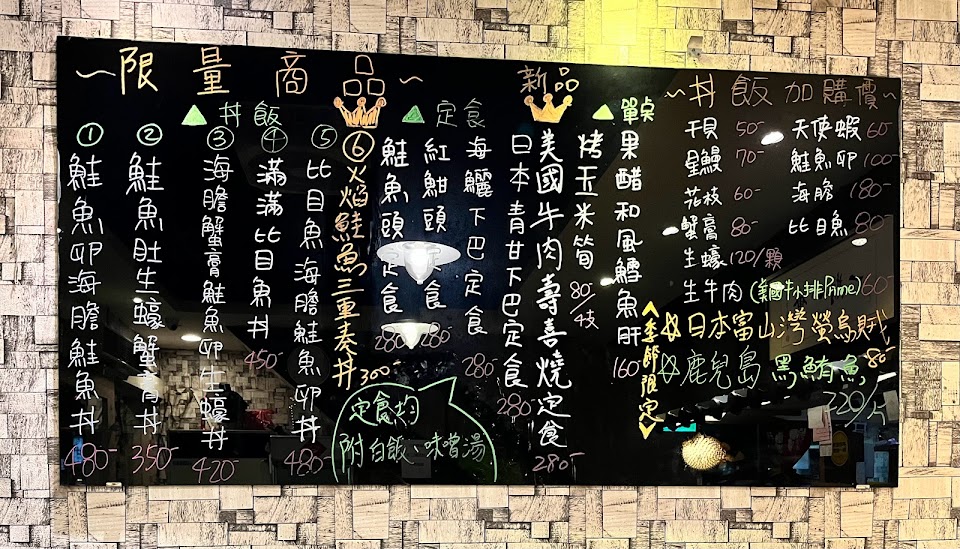 ~限量商品~
▲丼飯
① 鮭魚卵海膽鮭魚丼 480-
② 鮭魚肚生蠔蟹膏丼 350-
③ 海膽蟹膏鮭魚卵生蠔丼 420-
④ 滿滿比目魚丼 450-
⑤ 比目魚海膽鮭魚卵丼 480-
⑥ 火焰鮭魚三重奏丼 300-
▲定食
鮭魚頭定食 280-
紅魽頭定食 280-
海鱺下巴定食 280-
新品
日本青甘下巴定食 280-
美國牛肉壽喜燒定食 280-
定食均
附白飯、味噌湯
▲單点
烤玉米筍 80/4支
果醋和風鱈魚肝 160-
~丼飯加購價~
干貝 50-
星鰻 70-
花枝 60-
蟹膏 80-
生蠔 120/顆
生牛肉(美國牛小排Prime) 60-
天使蝦 60-
鮭魚卵 100-
海膽 180-
比目魚 80-
<季節限定>
日本富山灣螢烏賊 80-
鹿兒島黑鮪魚